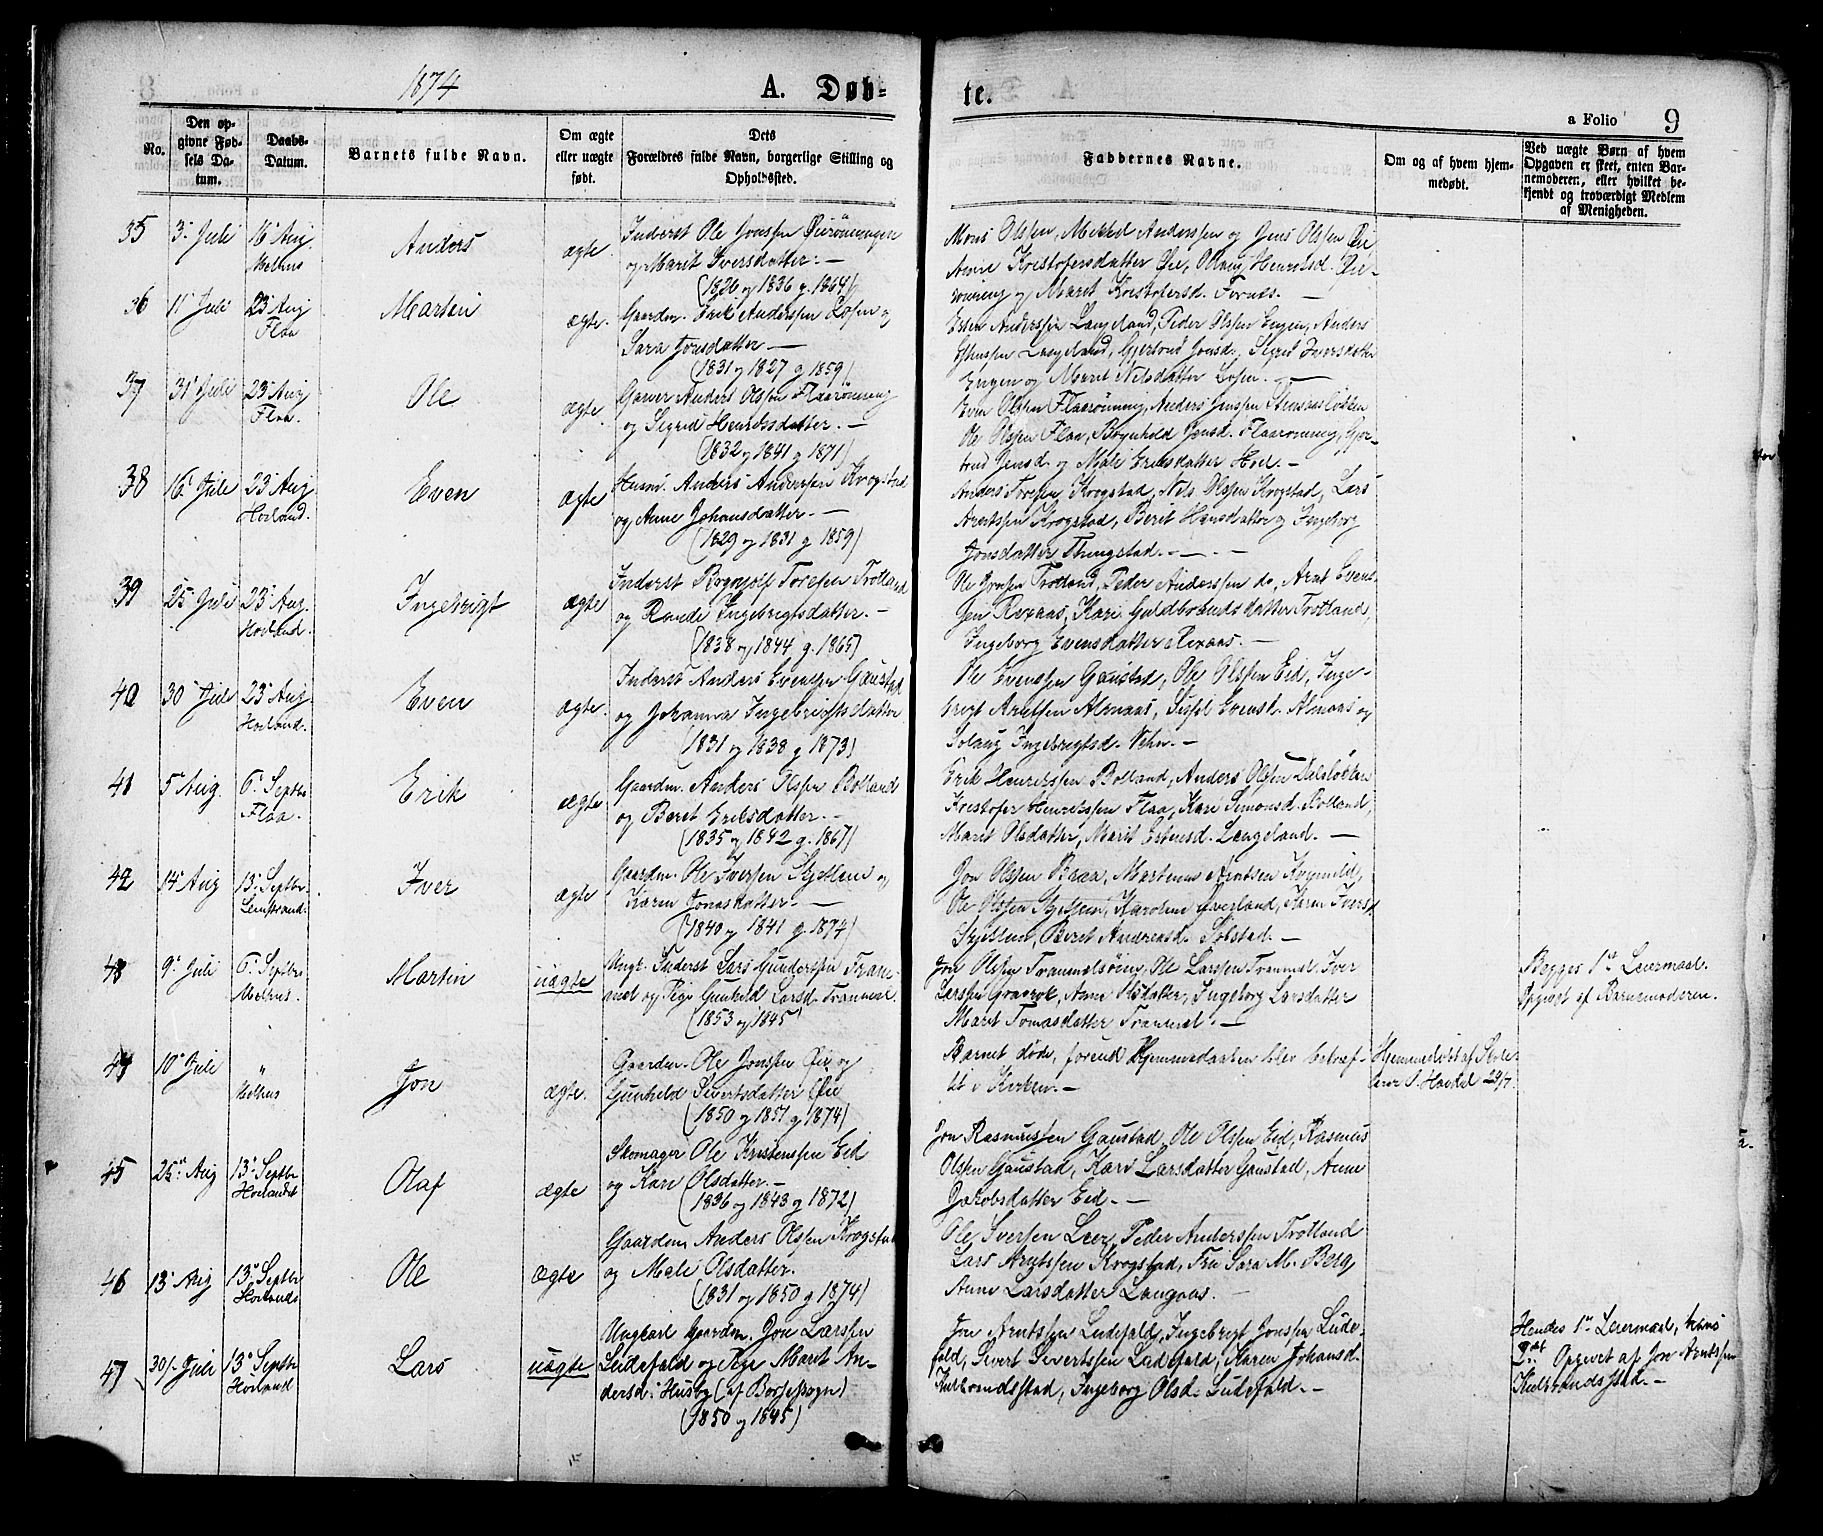 1874 A. Døb- te. a Folio 9
No. Den opgivne Fødsels Datum. Daabs-Datum. Barnets fulde Navn. Om ægte eller uægte født. Dets Forældres fulde Navn, borgerlige Stilling og Opholdssted. Faddernes Navne. Om og af hvem hjemmedøbt. Ved uægte Børn af hvem Opgaven er skeet, enten Barnemoderen, eller hvilket bekjendt og troværdigt Medlem af Menigheden.
35 3. Juli 16 Aug Melhus Anders ægte. Inderst Ole Jonssen Øierönningen
og Marit Iversdatter. —
(1826 og 1836 g. 1864)
Mons Olssen, Mikkel Anderssen og Jens Olssen Øie
Anne Kristofersdatter Øie, Ollaug Henriksd. Øie-
rönning og Marit Kristofersd. —
36 11 Juli 23 Aug Flaa Martin ægte. Gaardm. Erik Anderssen Losen og
Sara Jonsdatter —
(1831 og 1827 g 1859)
Esten Anderssen Langeland, Peder Olssen Engen, Anders
Estenssen Langeland, Gjertrud Jonsd., Sigrid Iversdatter
Engen og Marit Nilsdatter Losen. —
37 31 Juli 23 Aug Flaa Ole ægte. Garver Anders Olssen Flaarönning
og Sigrid Henriksdatter. —
(1832 og 1841 g 1871)
Even Olssen Flaarönning, Anders Jenssen
Ole Olssen Flaa, Ragnhild Jensd. Flaarönning, Gjer-
trud Jensd. og Mali Eriksdatter Hod. —
38 16. Juli 23 Aug Horland. Even ægte Husm. Anders Anderssen Krogstad
og Anne Johansdatter. —
(1829 og 1831 g 1859)
Anders Toresen Krogstad, Nils Olssen Krogstad, Lars
Arntssen Krogstad, Berit Hansdatter og Ingeborg
Jonsdatter Thungstad. —
39 25 Juli 23 Aug. Horland. Ingebrigt ægte Inderst Toresen Trotland
og Randi Ingebrigtsdatter. —
(1838 og 1844 g. 1865)
Ole Jonsen Trotland, Peder Anderssen do, Arnt Evens-
sen Rexaas, Kari Guldbrandsdatter Trotland,
Ingeborg Evensdatter Rexaas. —
40 30 Juli 23 Aug Horland. Even ægte. Inderst Anders Evenssen Gaustad
og Johanna Ingebrigtsdatter
(1831 og 1838 g 1873)
Ole Evenssen Gaustad, Ole Olssen Eid, Inge-
brigt Arntsen Almaas, Sissel Evensd. Almaas og
Solaug Ingebrigtsd. —
41 5 Aug. 6. Septbr Flaa. Erik ægte Gaardm. Anders Olssen Rolland
og Beret Eriksdatter. —
(1835 og 1842 g. 1867)
Erik Henrikssen Rolland, Anders Olssen
Kristofer Henrikssen Flaa, Kari Simonsd. Rolland,
Marit Olsdatter, Marit Estensd. Langeland. —
42 14 Aug 13. Septbr. Leinstrand. Iver ægte Gaardm. Ole Iverssen Skjetlein og
Karen Jonasdatter. —
(1840 og 1841 g. 1874)
Jon Olssen Braa, Martinus Arntsen Kregnild,
Ole Olssen Skjetlein, Karoline Øverland, Karen Iversd
Skjetlein, Beret Andreasd. Solstad. —
43 9. Juli 6. Septbr Melhus. Martin uægte Ungk. Inderst Lars Gunderssen Tran-
mel og Pige Gunhild Larsd. Tranmel.
(1853 og 1845)
Jon Olssen Tranmelsöing, Ole Larssen Tranmel, Iver
Larssen Graarok, Anne Olsdatter, Ingeborg Larsdatter
Marit Tomasdatter Tranmel. —
Begges 1ste Leiermaal.
Opgivet af Barnemoderen.
44 10 Juli " Melhus Jon ægte. Gaardm. Ole Jonssen Øie og
Gunhild Sivertsdatter Øie
(1850 og 1851 g 1874)
Barnet døde, forend Hjemmedaaben blev bekræf-
tet i Kirken. —
Hjemmedöbt af Skole-
lærer 29/7.
45 25 Aug 13. Septbr Horlands Olaf ægte Skomager Ole Kristenssen Eid
og Kari Olsdatter. —
(1836 og 1843 g 1872)
Jon Rasmussen Gaustad, Ole Olssen Eid, Rasmus
Olssen Gaustad, Kari Larsdatter Gaustad, Anne
Jakobsdatter Eid. —
46 13. Aug 13. Septbr Horlands Ole ægte Gaardm. Anders Olssen Krogstad
og Mali Olsdatter.
(1831 og 1850 g 1874)
Ole Iverssen Leer, Peder Anderssen Trotland
Lars Arntssen Krogstad, Fru Sara M. Berg,
Anne Larsdatter Langaas. —
47 30. Juli 13. Septbr Horland Lars uægte Ungkarl Gaardm. Jon Larssen
Ludefald og Pige Marit An-
dersd. Husby (af Börsesogn)
(1850 og 1845)
Jon Arntssen Ludefald, Ingebrigt Jonssen Lude-
fald, Sivert Sivertssen Ludefald, Maren Johansd.
Kulbrandsstad, Ingeborg Olsd. Ludefald. —
Hendes 1ste Leiermaal, hans
2det. Opgivet af Jon Arntssen
Kulbrandsstad. —